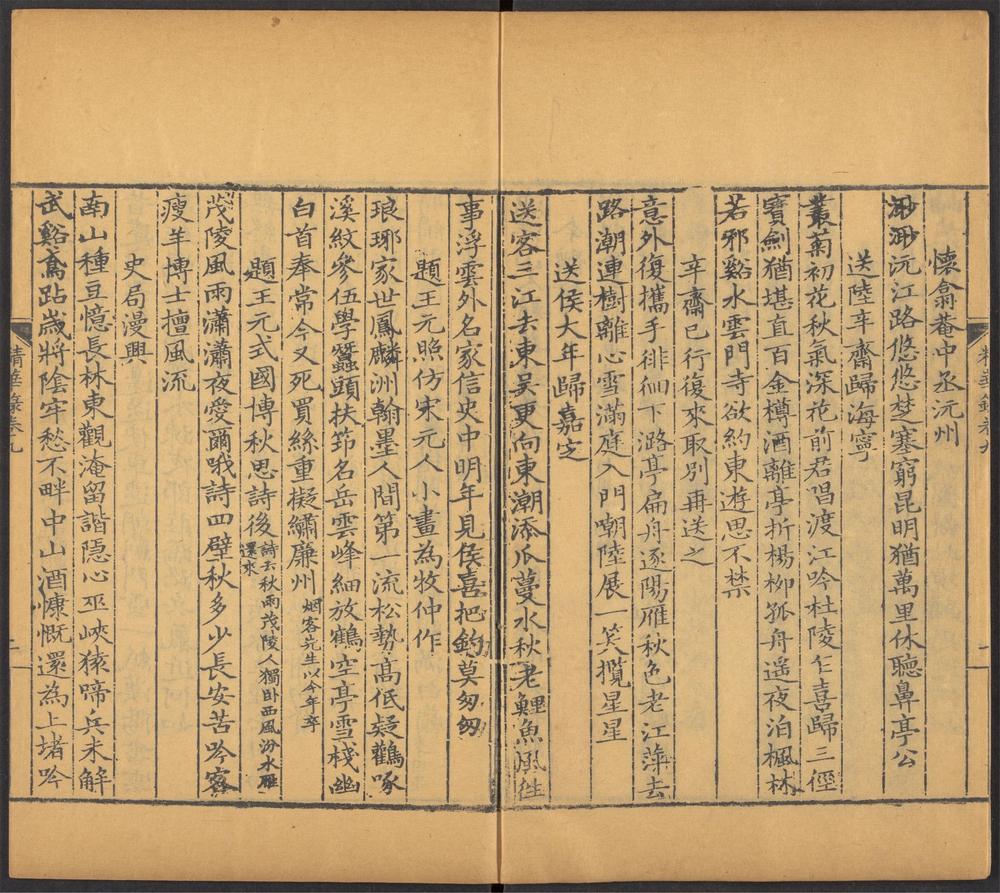 懷翕菴中丞沅州
渺渺沅江路悠悠楚塞窮昆明猶萬里休聽鼻亭公
送陸辛齋歸海寧
叢菊初花秋氣深花前君唱渡江吟杜陵乍喜歸三徑
寶劍猶堪直百金樽酒離亭折楊柳孤舟遥夜泊楓林
若邪谿水雲門寺欲約東遊思不禁
辛齋已行復來取別再送之
意外復攜手徘徊下潞亭扁舟逐陽雁秋色老江萍去
路潮連樹離心雪滿庭入門嘲陸展一笑攬星星
送侯大年歸嘉定
送客三江去東吴更向東潮添瓜蔓水秋老鯉魚風徃
事浮雲外名家信史中明年見侯喜把釣莫匆匆
題王元照仿宋元人小畫為牧仲作
琅琊家世鳳麟洲翰墨人間第一流松勢高低疑鸛啄
溪紋參伍學蠶頭扶筇名岳雲峰細放鶴空亭雪棧幽
白首奉常今又死買絲重擬繡廉州 烟客先生以今年卒
題王元式國博秋思詩後 詩云秋雨茂陵人獨卧西風汾水雁
還來
茂陵風雨瀟瀟夜愛爾哦詩四壁秋多少長安苦吟客
瘦羊博士擅風流
史局漫興
南山種豆憶長林東觀淹留諧隱心巫峽猿啼兵未解
武谿鳶跕歲將陰牢愁不畔中山酒慷慨還為上堵吟
精華錄卷九
一
精華錄卷九
二